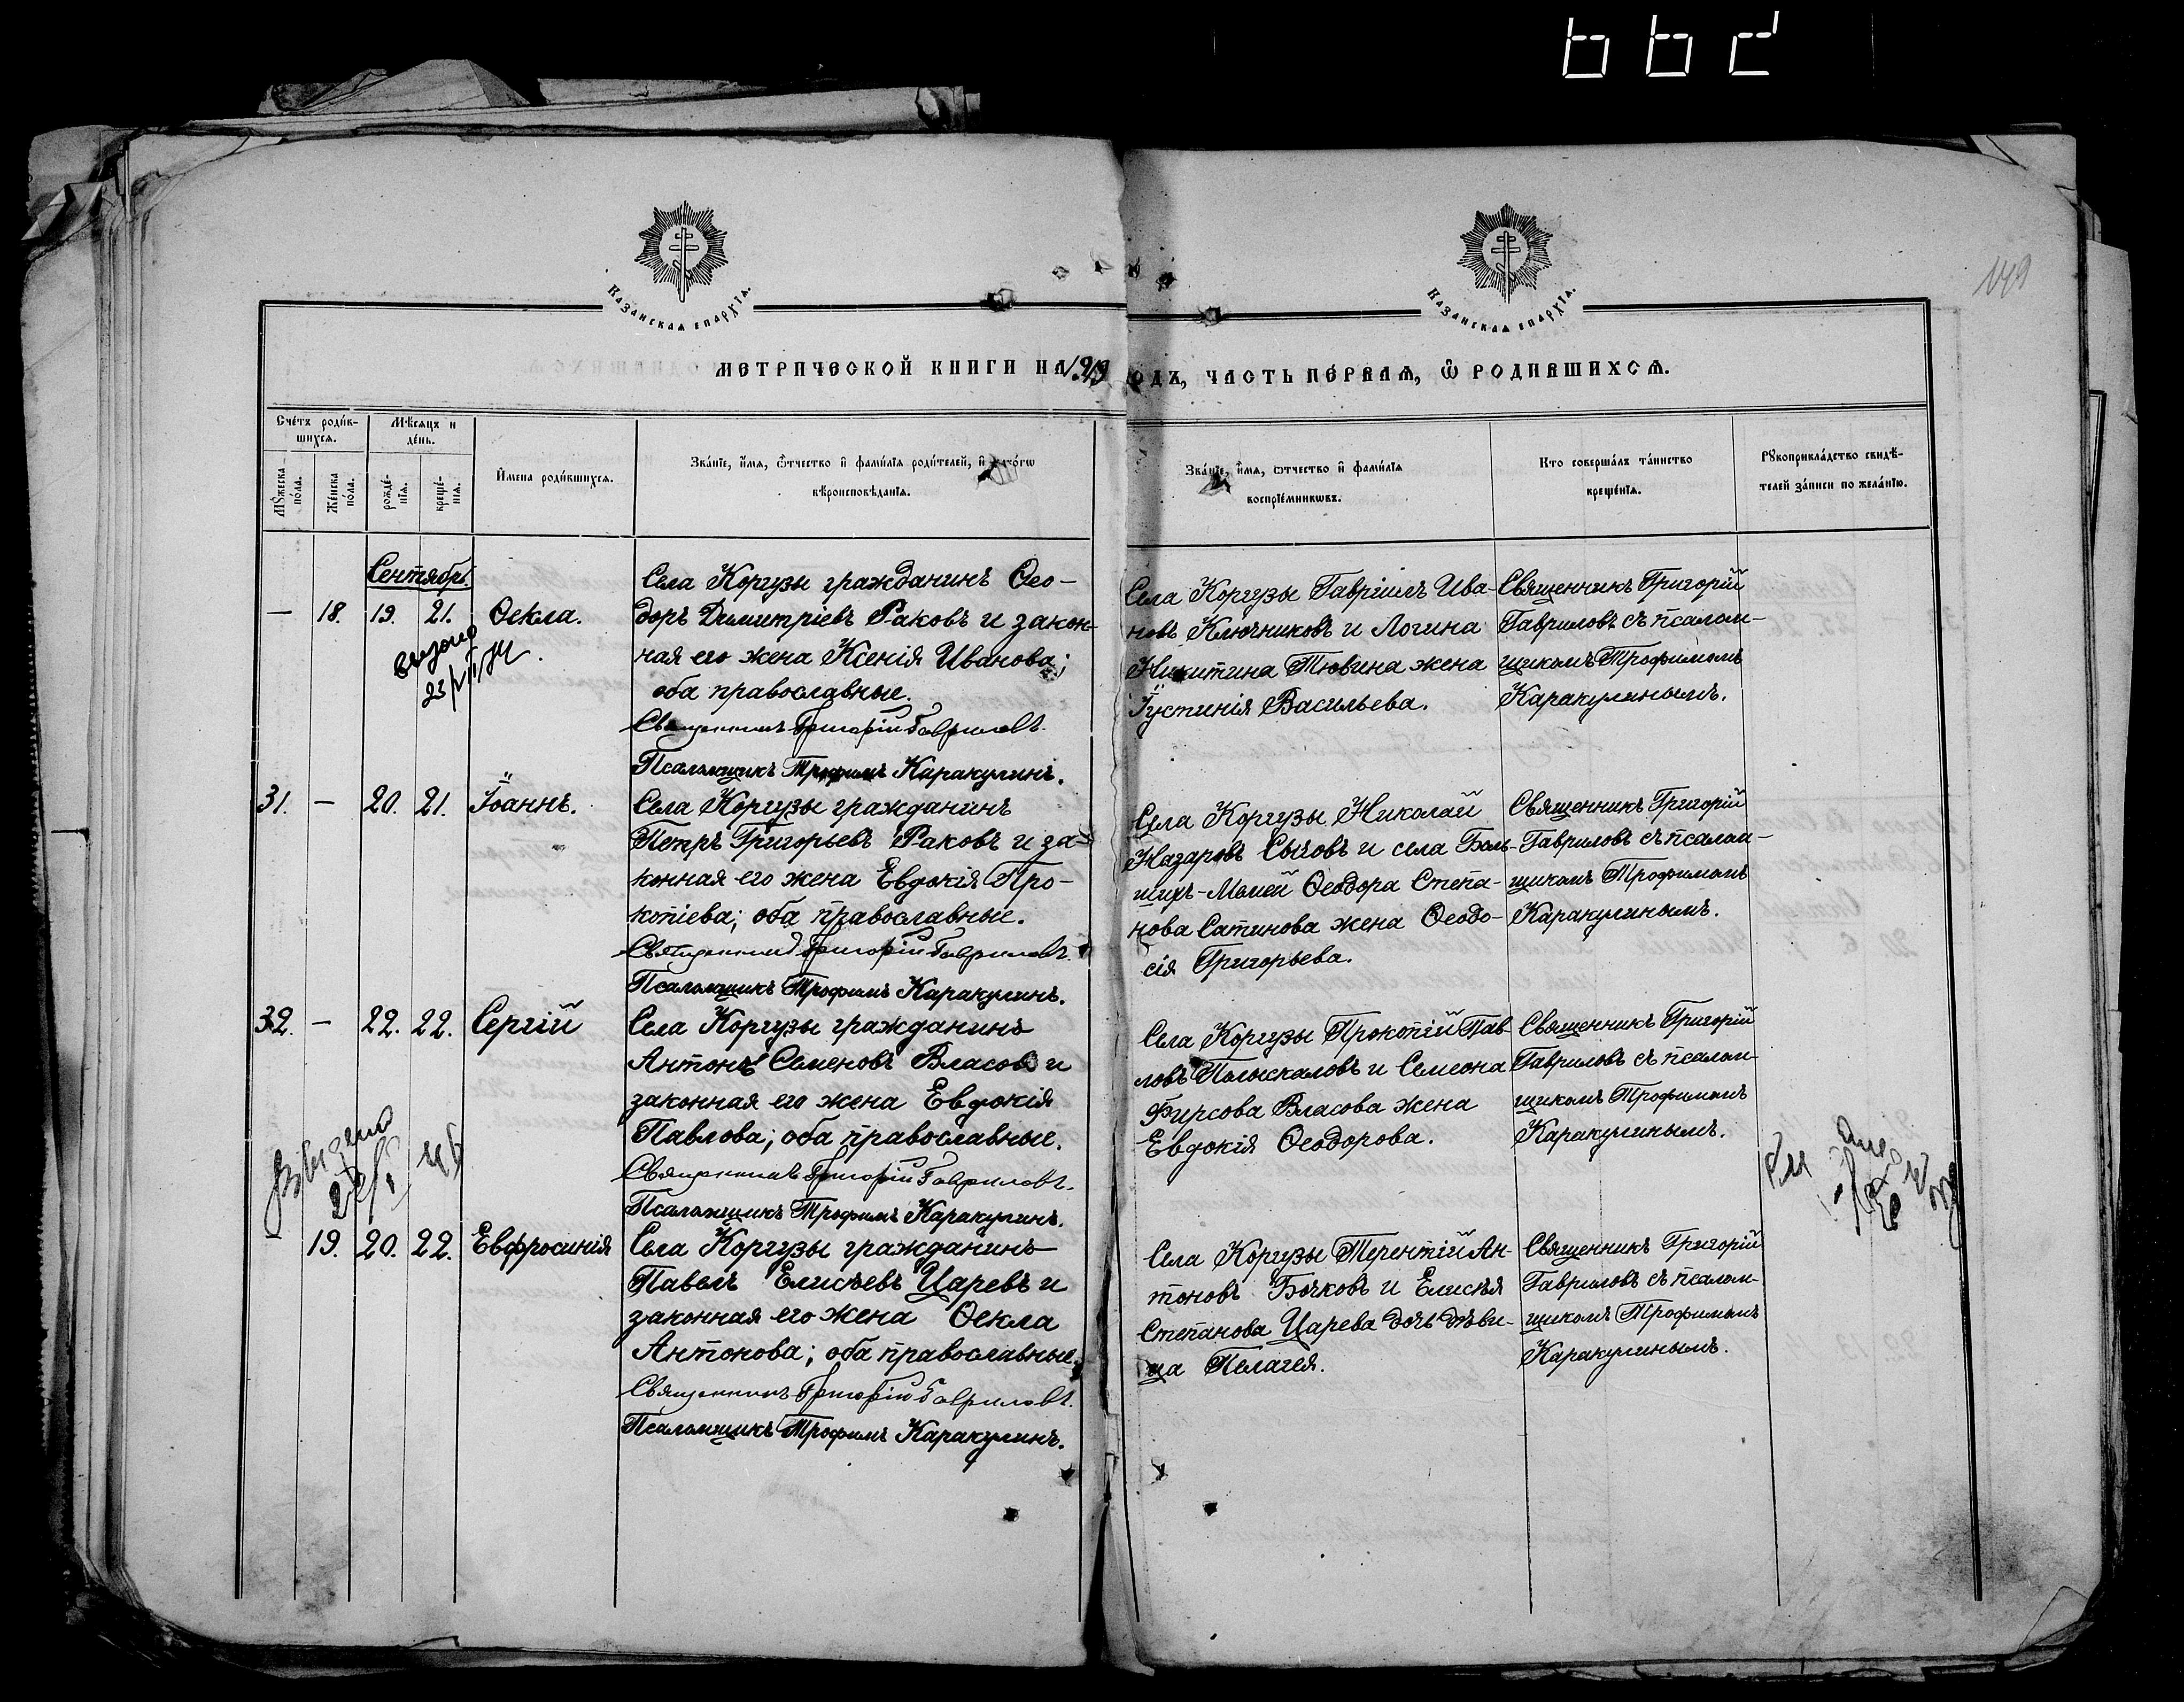 Казанская епархїѧ.
Казанская епархїѧ.
149
МЕТРИЧЕСКОЙ КНИГИ НА
ОДЪ, ЧАСТЬ ПЕ́РВАѦ, Ѽ РОДИВШИХСѦ.
Сче́тъ роди́в-
шихсѧ.
Мѣсѧцъ и
де́нь.
Мꙋ́жеска
по́ла.
Же́нска
по́ла.
рожде́-
нїѧ.
креще́-
нїѧ.
И҆мена роди́вшихсѧ.
Зва́нїе, и҆́мѧ, ѻ҆́тчество и҆ фами́лїѧ роди́телей, и҆
вѣроисповѣ́данїѧ.
Зва́нїе, и҆́мѧ, ѻтчество и҆ фами́лїѧ
воспрїе́мникѡвъ.
Кто соверша́лъ та́инство
креще́нїѧ.
Рꙋкоприкла́дство свидѣ́-
телей за́писи по жела́нїю.
Сентябрь.
— 18. 19. 21. Ѳекла.
Села Коргузы гражданинъ Ѳео-
доръ Димитріевъ Раковъ и закон-
ная его жена Ксенія Иванова;
оба православные.
Священникъ Григорій Гавриловъ.
Псаломщикъ Трофимъ Каракулинъ.
Села Коргузы Гавріилъ Ива-
новъ Ключниковъ и Логина
Никитина Тювина жена
Іустинія Васильева.
Священникъ Григорій
Гавриловъ съ псалом-
щикомъ Трофимомъ
Каракулинымъ.
31. — 20. 21. Іоаннъ.
Села Коргузы гражданинъ
Петръ Григорьевъ Раковъ и за-
конная его жена Евдокія Про-
копіева; оба православные.
Священникъ Григорій Гавриловъ.
Псаломщикъ Трофимъ Каракулинъ.
Села Коргузы Николай
Назаровъ Сычовъ и села Боль-
шихъ-Меми Ѳеодора Степа-
нова Сатинова жена Ѳеодо-
сія Григорьева.
Священникъ Григорій
Гавриловъ съ псалом-
щикомъ Трофимомъ
Каракулинымъ.
32. — 22. 22. Сергій
Села Коргузы гражданинъ
Антонъ Семеновъ Власовъ и
законная его жена Евдокія
Павлова; оба православные.
Священникъ Григорій Гавриловъ.
Псаломщикъ Трофимъ Каракулинъ.
Села Коргузы Прокопій Пав-
ловъ Полоскаловъ и Симеона
Фирсова Власова жена
Евдокія Ѳеодорова.
Священникъ Григорій
Гавриловъ съ псалом-
щикомъ Трофимомъ
Каракулинымъ.
19. 20. 22. Евфросинія
Села Коргузы гражданинъ
Павелъ Елисѣевъ Царевъ и
законная его жена Ѳекла
Антонова; оба православные.
Священникъ Григорій Гавриловъ.
Псаломщикъ Трофимъ Каракулинъ.
Села Коргузы Терентій Ан-
тоновъ Бочковъ и Елисѣя
Степанова Царева дочь дѣви-
ца Пелагея.
Священникъ Григорій
Гавриловъ съ псалом-
щикомъ Трофимомъ
Каракулинымъ.